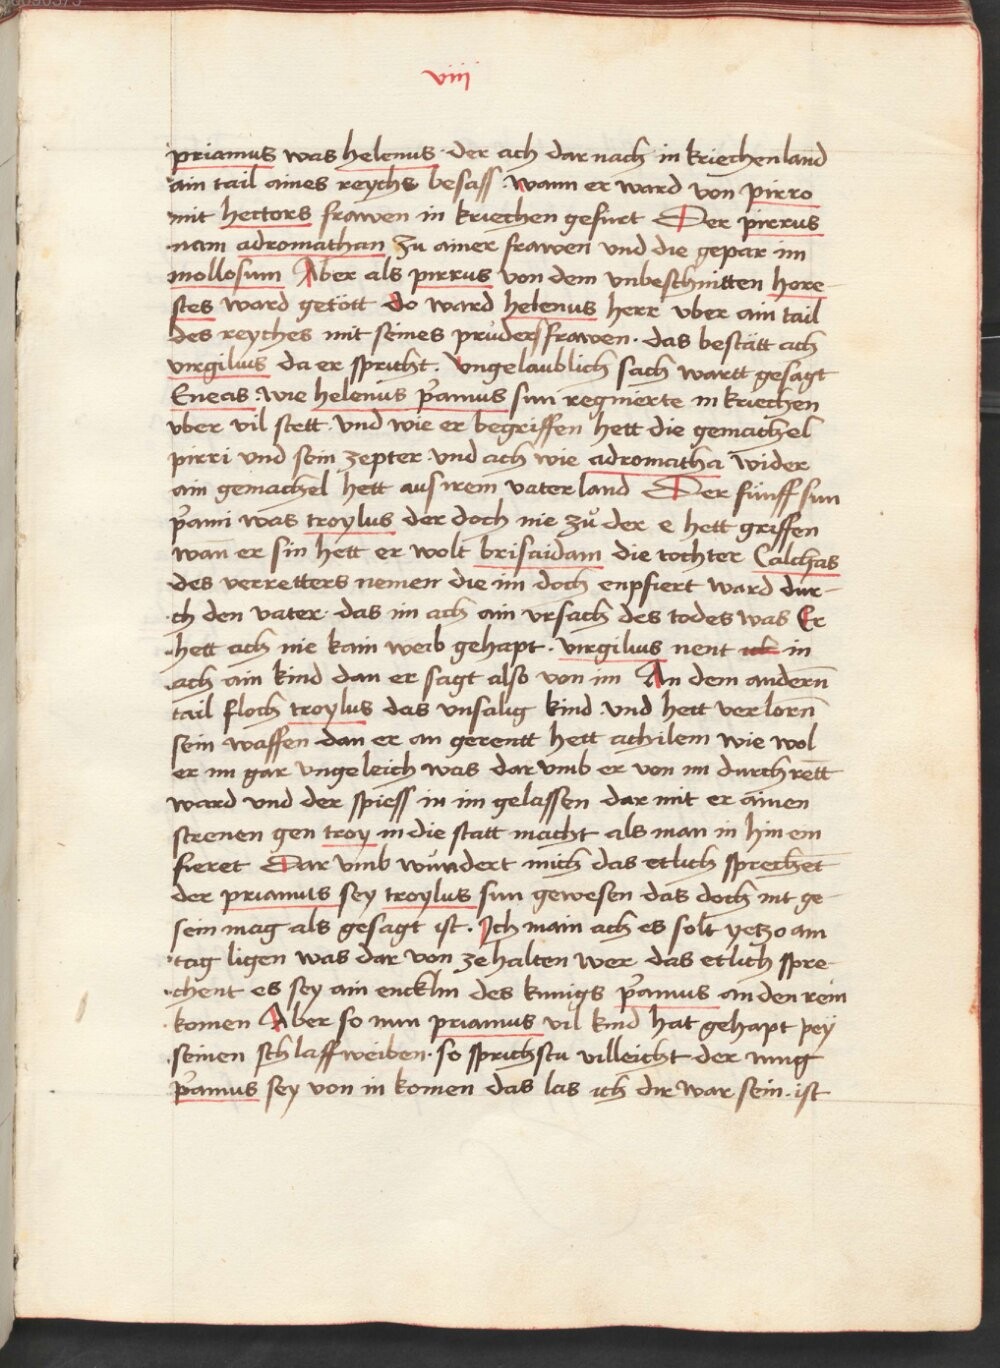 viij
priamus was helenus · der ach dar nach in kriechenland
ain tail aines reychs besass · wann er ward von pirro
mit hectors frawen in kriechen gefurt Der pirrus
nam adromathan zu ainer frawen und die gepar im
mollosum Aber als pirrus von dem vnbeschnitten hore-
stes ward getött do ward helenus herr vber ain tail
des reyches mit seines průders frawen · das bestätt ach
virgilius da er spricht · vngelaublich sach wartt gesagt
Eneas · wie helenus p̄amus sun regnierte in kriechen
vber vil stett · Und wie er begriffen hett die gemachel
pirri und sein zepter · vnd ach wie adromatha wider
ain gemachel hett aus irem vaterland Der fünff sun
p̄ami was troylus der doch nie zů der e hett griffen
wan̄ er sin hett er wolt brisaidam die tochter Calchas
des verretters nemen die im doch enpfiert ward dur-
ch den vater · das im ach ain vrsach des todes was Er
hett ach nie kain weib gehapt · virgilius nent in
ach ain kind dan er sagt also von im An dem andern̄
tail floch troylus das vnsalig kind · und hett verlorn̄
sein waffen dan er an gerentt hett achilem wie wol
er im gar vngeleich was dar vmb er von im durchrett̄
ward und der spiess in im gelassen dar mit er ainen
strenen gen troy in die statt macht als man in hin ein
fieret Dar vmb wůndert mich das etlich sprechet̄
der priamus sey troylus sun gewesen das doch nit ge-
sein mag als gesagt ist · Ich main ach es solt yetzo am
tag ligen was dar von ze halten wer das etlich spre-
chent es sey ain encklin des kunigs p̄amus an den rein
komen Aber so nun priamus vil kind hat gehapt pey
seinen schlaffweiben · so sprichstu villeicht der iung
p̄amus sey von in komen das las ich dir war sein · ist